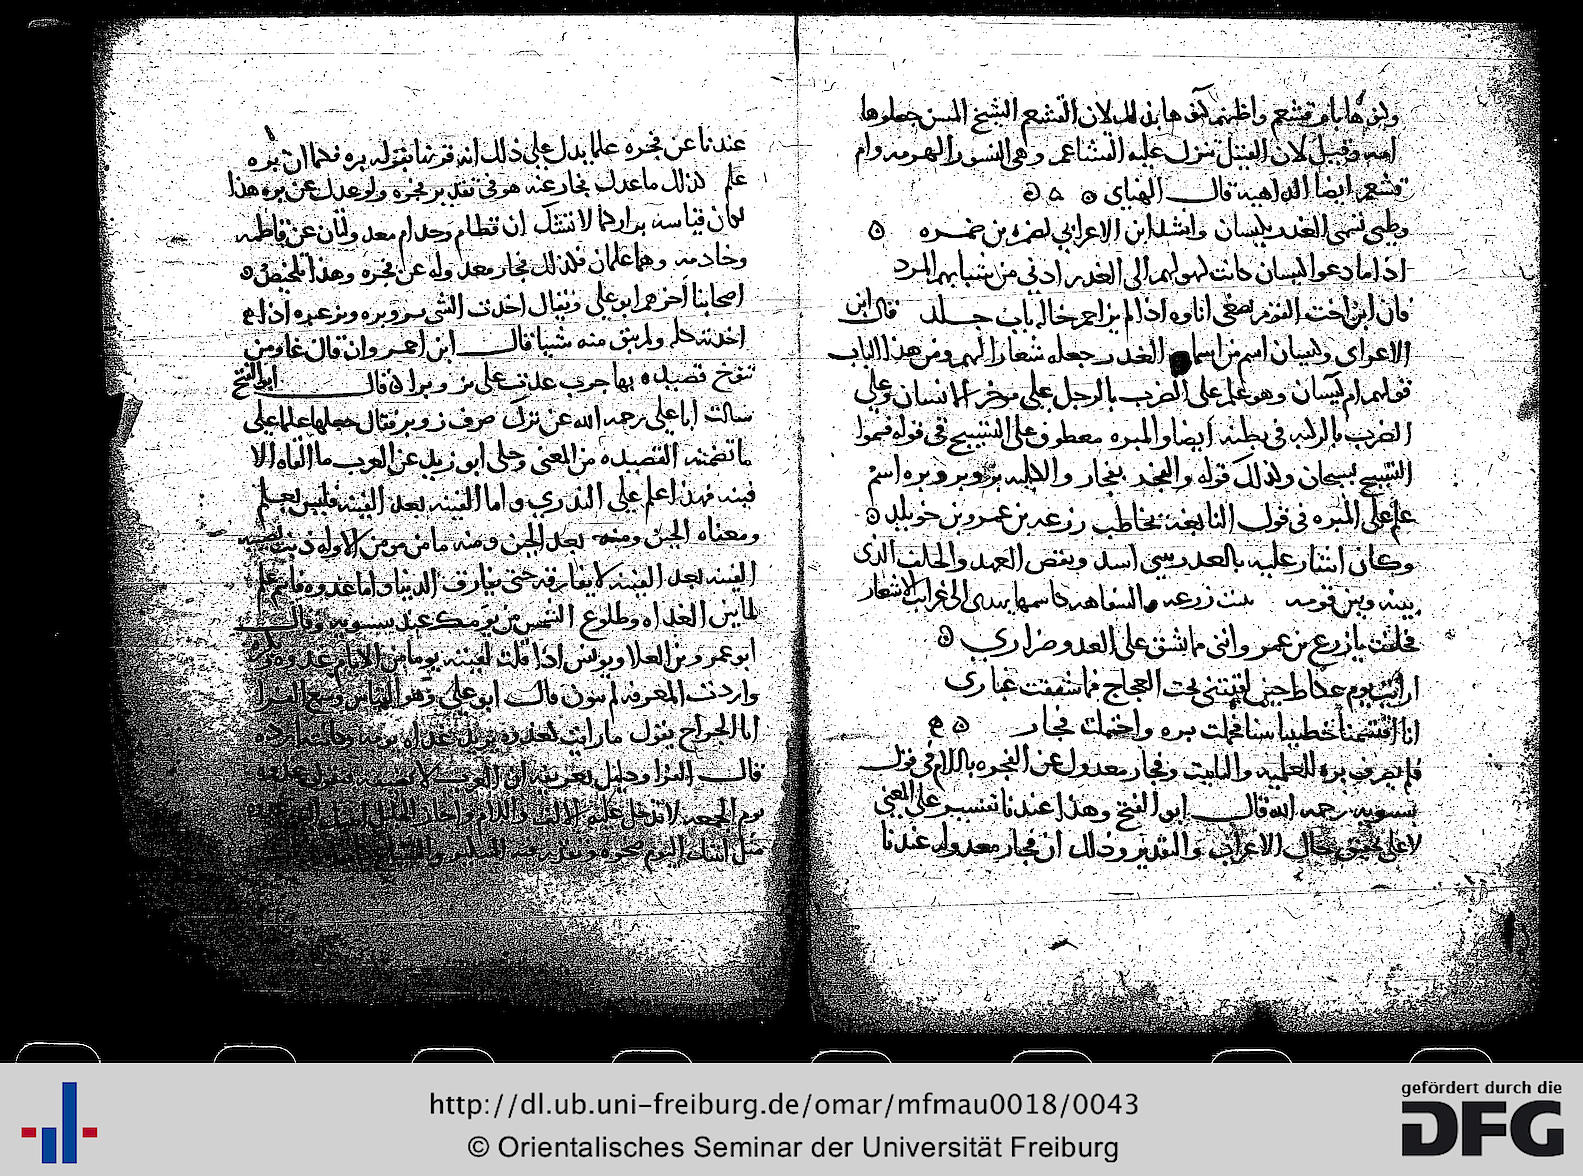 وكنوها بام قشعم واظنهم كنوها بذلك لان القشعم الشيخ المسن جعلوها
امه وقيل لان القتيل تنزل عليه القشاعم وهي النسور الهرمه وام
قشعم ايضا الداهيه قال الهنائي
وطيى تسمى الغدر كيسان وانشد ابن الاعرابي لضمره بن ضمره
اذا ما دعوا كيسان كانت كهولهم الى الغدر ادنى من شبابهم المرد
فان ابن اخت القوم مصغى اناوه اذا لم يزاحم خاله باب جلد قال ابن
الاعرابي وكيسان اسم من اسما الغدر جعله شعارا لهم ومن هذا الباب
قولهم ام كيسان وهو علم على الضرب بالرجل على موخر الانسان وعلى
الضرب بالركبه في بطنه ايضا والمبره معطوف على التسبيح في قوله فسموا
التسبيح بسبحان وكذلك قوله والفجره بفجار والكليه بزوبر وبره اسم
علم على المبره في قول النابغه يخاطب زرعه بن عمرو بن خويلد
وكان اشار عليه بالغدر ببني اسد ونقض العهد والحلف الذي
بينه وبين قومه نبت زرعه والسفاهه كاسمها يهدى الى غرايب الاشعار
فحلفت يا زرع بن عمرو انني مما يشق على العدو ضراري
ارايت يوم عكاظ حين لقيتني تحت العجاج فما شققت غباري
انا اقتسمنا خطيتنا بيننا فحملت بره واحتملت فجار
فلم يصرف بره للعلميه والتانيث وفجار معدول عن الفجره باللام في قول
سيبويه رحمه الله قال ابو الفتح وهذا عندنا تفسير على المعنى
لا على تحقيق حال الاعراب والتقدير وذلك ان فجار معدوله عندنا
عندنا عن فجره علما يدل على ذلك انه قرنها بقوله بره فكما ان بره
علم كذلك ما عدل فجار عنه هو في تقدير فجره ولو عدل عن بره هذا
لكان قياسه برار كما لا نشك ان قطام وحذام معدولتان عن قاطمه
وحاذمه وهما علمان فكذلك فجار معدوله عن فجره وهذا تلخيص
اصحابنا اخرهم ابو علي ويقال اخذت الشي بزوبره وبزغبره اذا
اخذته كله ولم يبق منه شيا قال ابن احمر وان قال غاو من
تنوخ قصيده بها جرب عدت علي بزوبرا قال ابو الفتح
سالت ابا علي رحمه الله عن ترك صرف زوبر فقال جعلها علما على
ما تضمنته القصيده من المعنى وحكى ابو زيد عن العرب ما القاه الا
فينه فهذا علم على الندرى واما الفينه بعد الفينه فليس بعلم
ومعناه الحين بعد الحين ومنه ما من مومن الا وله ذنب يصيبه
الفينه بعد الفينه لا يفارقه حتى يفارق الدنيا واما غدوه فاسم علم
لما بين الغداه وطلوع الشمس من يومك عند سيبويه وقال
ابو عمرو بن العلا ويونس اذا قلت لقيته يوما من الايام غدوه بكره
واردت المعرفه لم تنون قال ابو علي وهو القياس وسمع الفرا
ابا الجراح يقول ما رايت كغدوه يريد غداه يومه وكانت بارده
قال الفرا ودليل تعريفه ان العرب لا تضيفه تقول غدوه
يوم الجمعه لا تدخل عليه الالف واللام واجاز الخليل
مثل اتيتك اليوم بكره
http://dl.ub.uni-freiburg.de/omar/mfmau0018/0043
© Orientalisches Seminar der Universität Freiburg
gefördert durch die
DFG